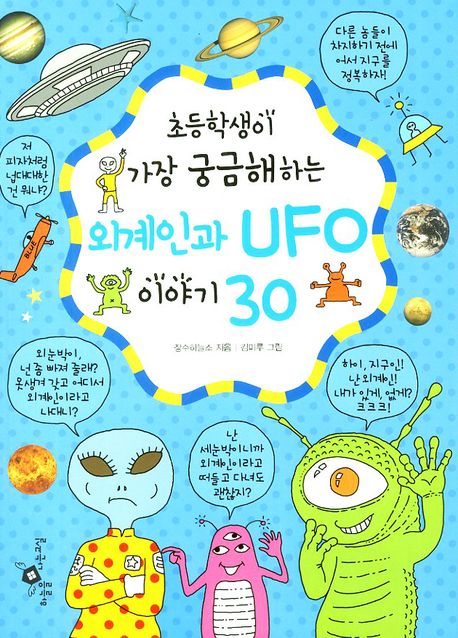 다른 놈들이
차지하기 전에
어서 지구를
정복하자!
초등학생이
가장 궁금해하는
외계인과 UFO
이야기 30
저
피자처럼
넙대대한
건 뭐냐?
BLUE
장수하늘소 지음 | 김미루 그림
외눈박이,
넌 좀 빠져 줄래?
못생겨 갖고 어디서
외계인이라고
나대니?
하이, 지구인!
난 외계인!
내가 있게, 없게?
크크크!
난
세눈박이니까
외계인이라고
떠들고 다녀도
괜찮지?
하늘을 나는 교실